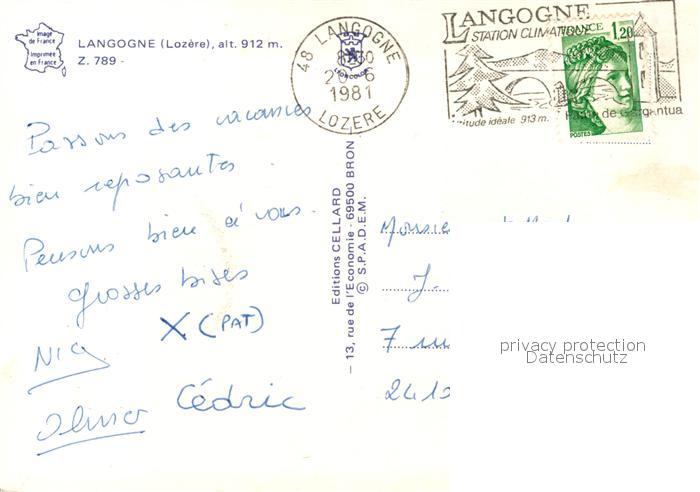 Image
de France
Imprimée
en France
LANGOGNE (Lozère), alt. 912 m.
Z. 789 -
48 LANGOGNE
20-6
1981
LOZERE
LANGOGNE
STATION CLIMATIQUE
Altitude idéale 913 m.
Pays de Gargantua
FRANCE
1,20
POSTES
Passons des vacances
bien reposantes.
Pensons bien à vous.
Grosses bises
X (PAT)
Olivier Cédric
Editions CELLARD
- 13, rue de l'Economie - 69500 BRON
© S.P.A.D.E.M.
J.
7
privacy protection
Datenschutz